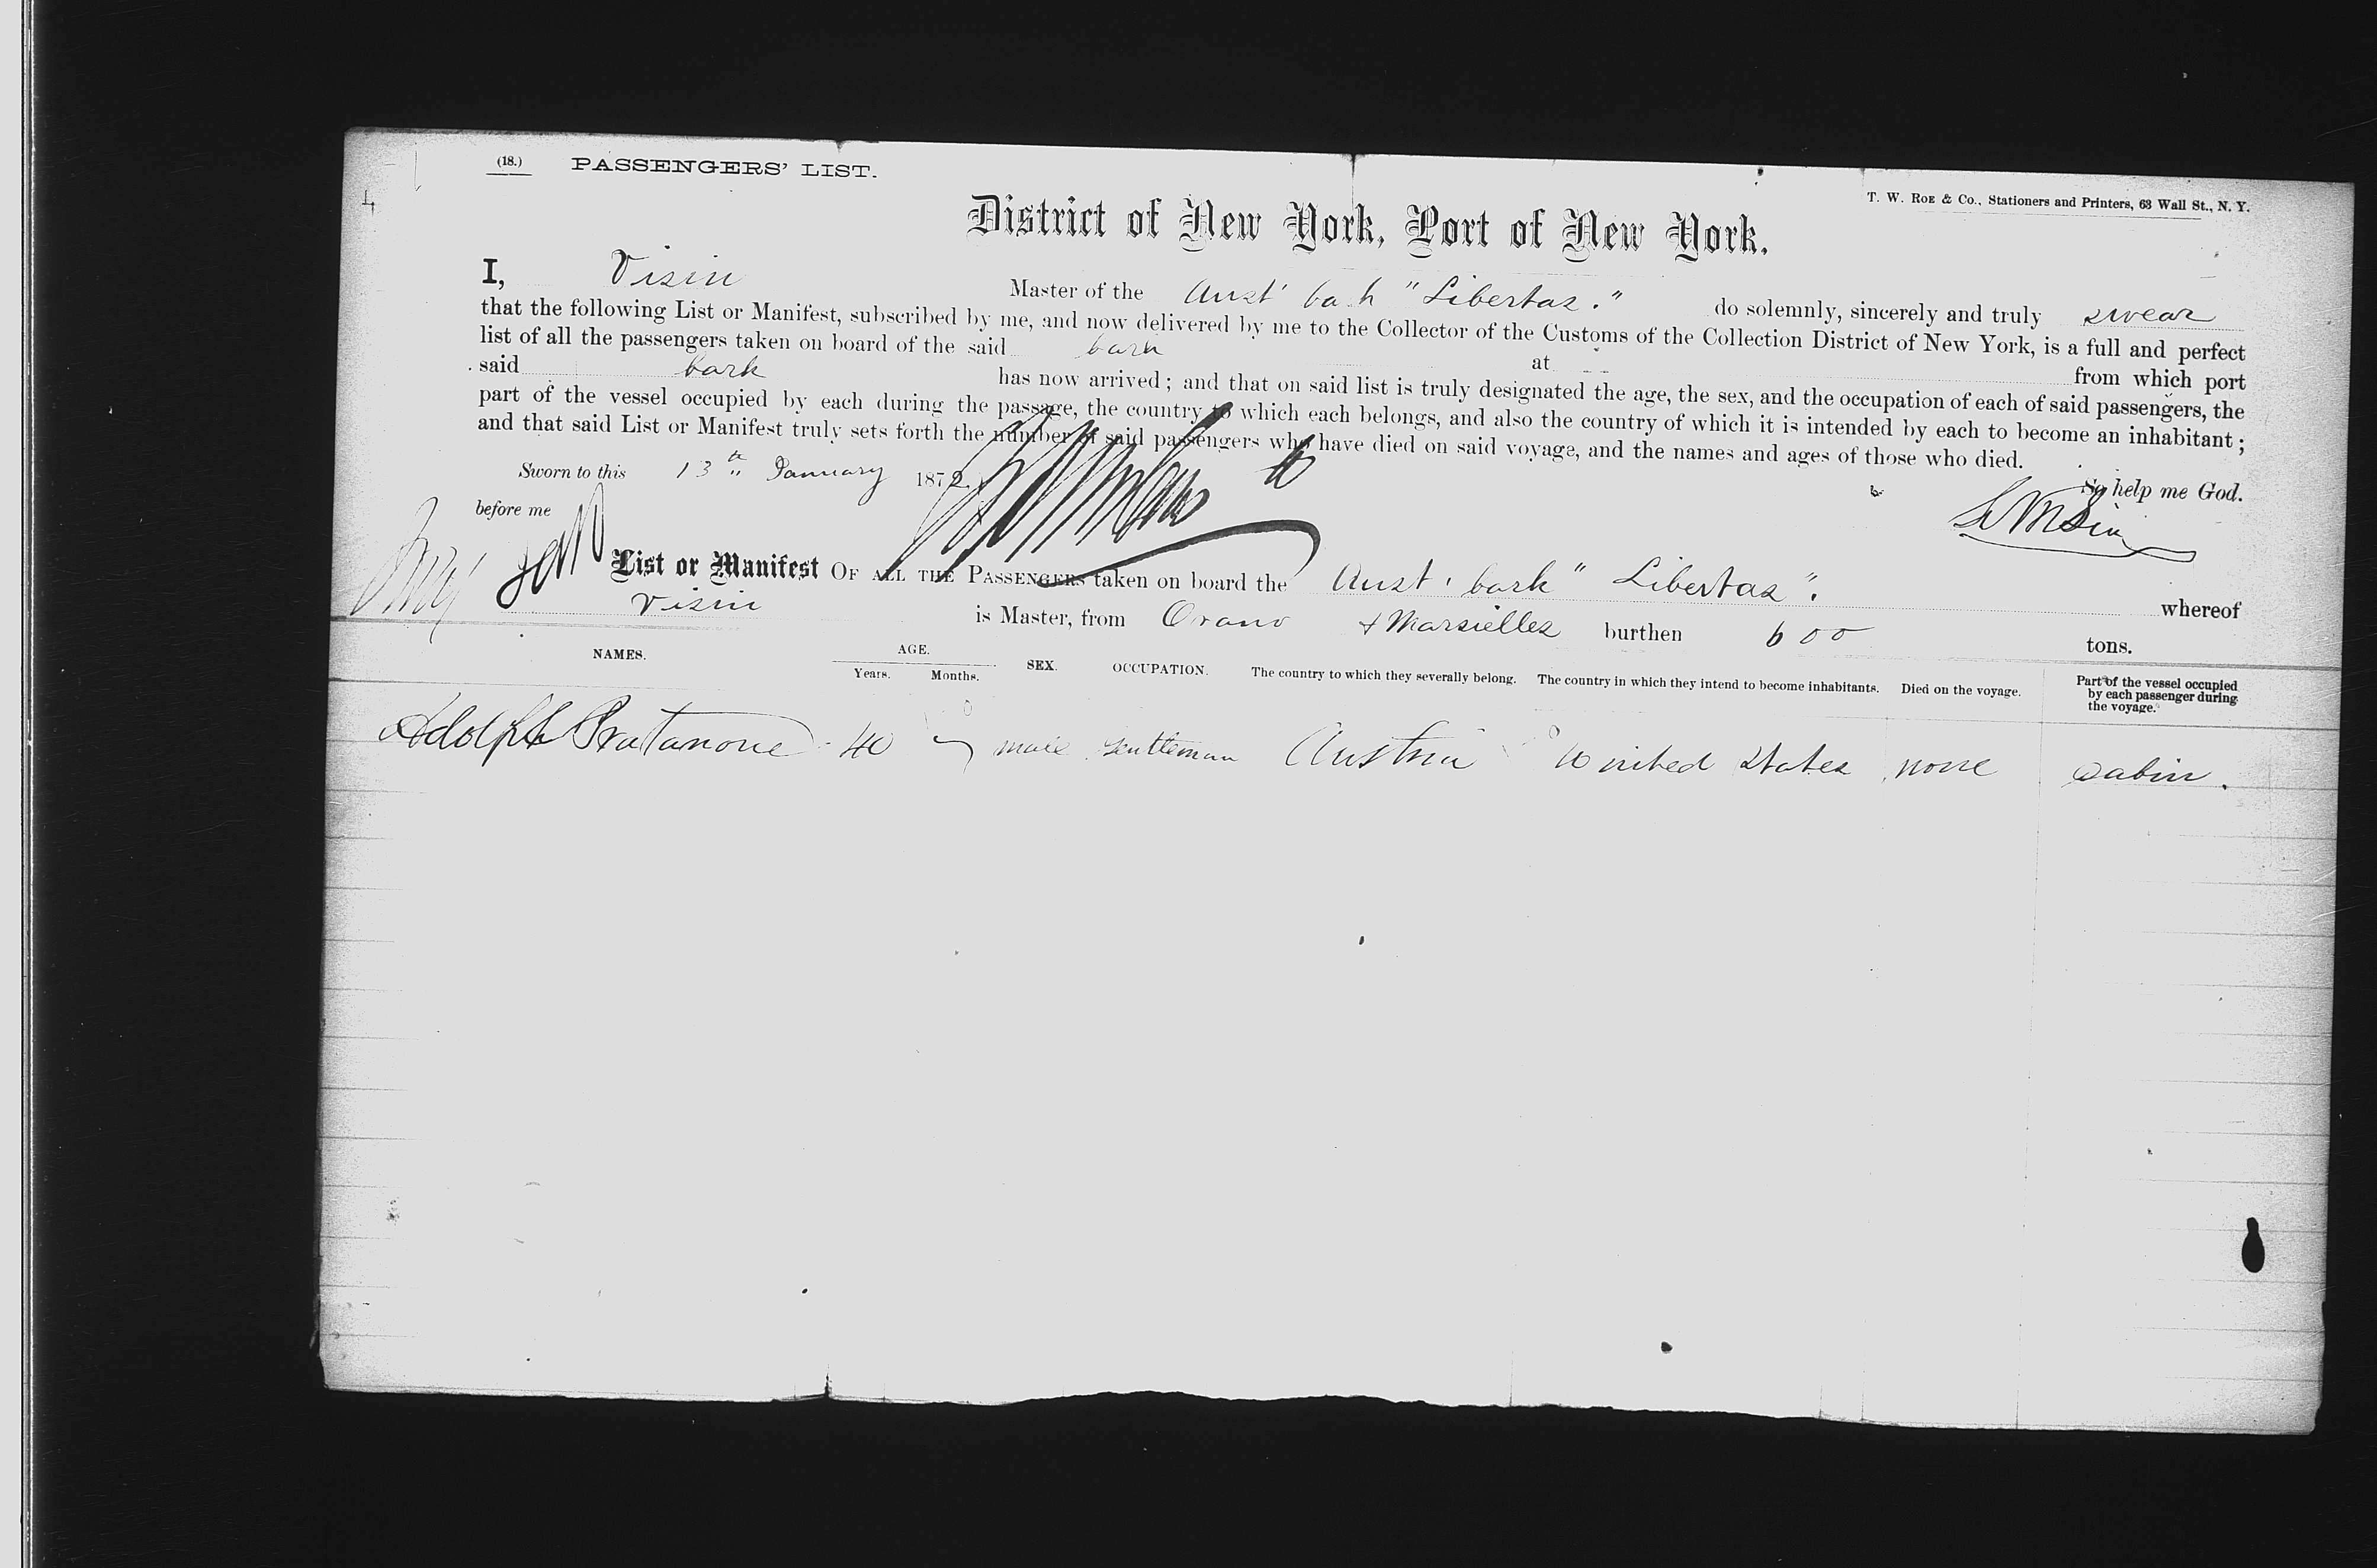 4
(18.) PASSENGERS' LIST.
T. W. ROE & Co., Stationers and Printers, 63 Wall St., N. Y.
District of New York, Port of New York.
I, Visin Master of the Aust' bark "Libertas." do solemnly, sincerely and truly swear
that the following List or Manifest, subscribed by me, and now delivered by me to the Collector of the Customs of the Collection District of New York, is a full and perfect
list of all the passengers taken on board of the said bark at from which port
said bark has now arrived; and that on said list is truly designated the age, the sex, and the occupation of each of said passengers, the
part of the vessel occupied by each during the passage, the country to which each belongs, and also the country of which it is intended by each to become an inhabitant;
and that said List or Manifest truly sets forth the number of said passengers who have died on said voyage, and the names and ages of those who died.
Sworn to this 13th January 1872 So help me God.
before me
List or Manifest OF ALL THE PASSENGERS taken on board the Aust' bark "Libertas". whereof
Visin is Master, from Orano & Marsielles burthen 600 tons.
NAMES. AGE. Years. Months. SEX. OCCUPATION. The country to which they severally belong. The country in which they intend to become inhabitants. Died on the voyage. Part of the vessel occupied by each passenger during the voyage.
Adolph 40 male gentleman Austria United States none cabin.